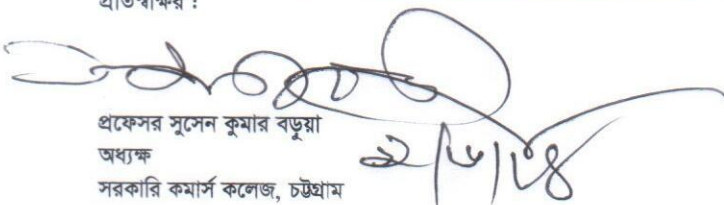 প্রতিস্বাক্ষর :
প্রফেসর সুসেন কুমার বড়ুয়া
অধ্যক্ষ
সরকারি কমার্স কলেজ, চট্টগ্রাম